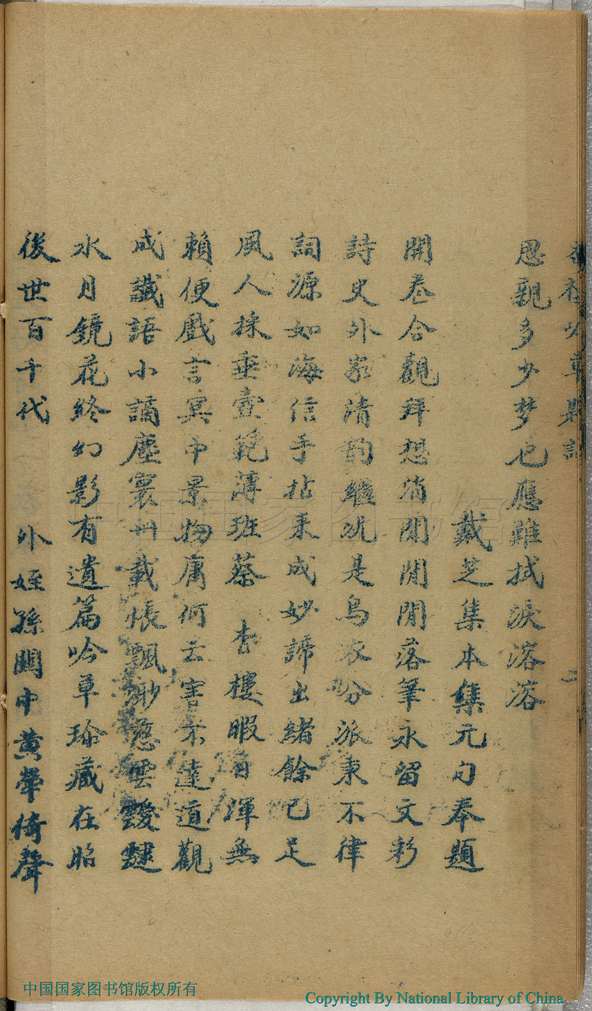 思親多少梦也應難拭淚溶溶
戴芝集本集元句奉題
開卷合觀拜想消閒閒閒落筆永留文彩
詩史外家清韵繼況是烏衣分派秉不律
詞源如海信手拈来成妙諦出緒餘已足
風人採垂壼範薄班蔡 杏樓暇日渾無
賴便戲言冥中景物庸何云害未達道觀
成讖語小謫塵寰卅載悵飄渺慈雲靉靆
水月鏡花終幻影有遺篇吟草珍藏在昭
後世百千代 外姪孫關中黄犖倚聲
中国国家图书馆
中国国家图书馆版权所有
Copyright By National Library of China